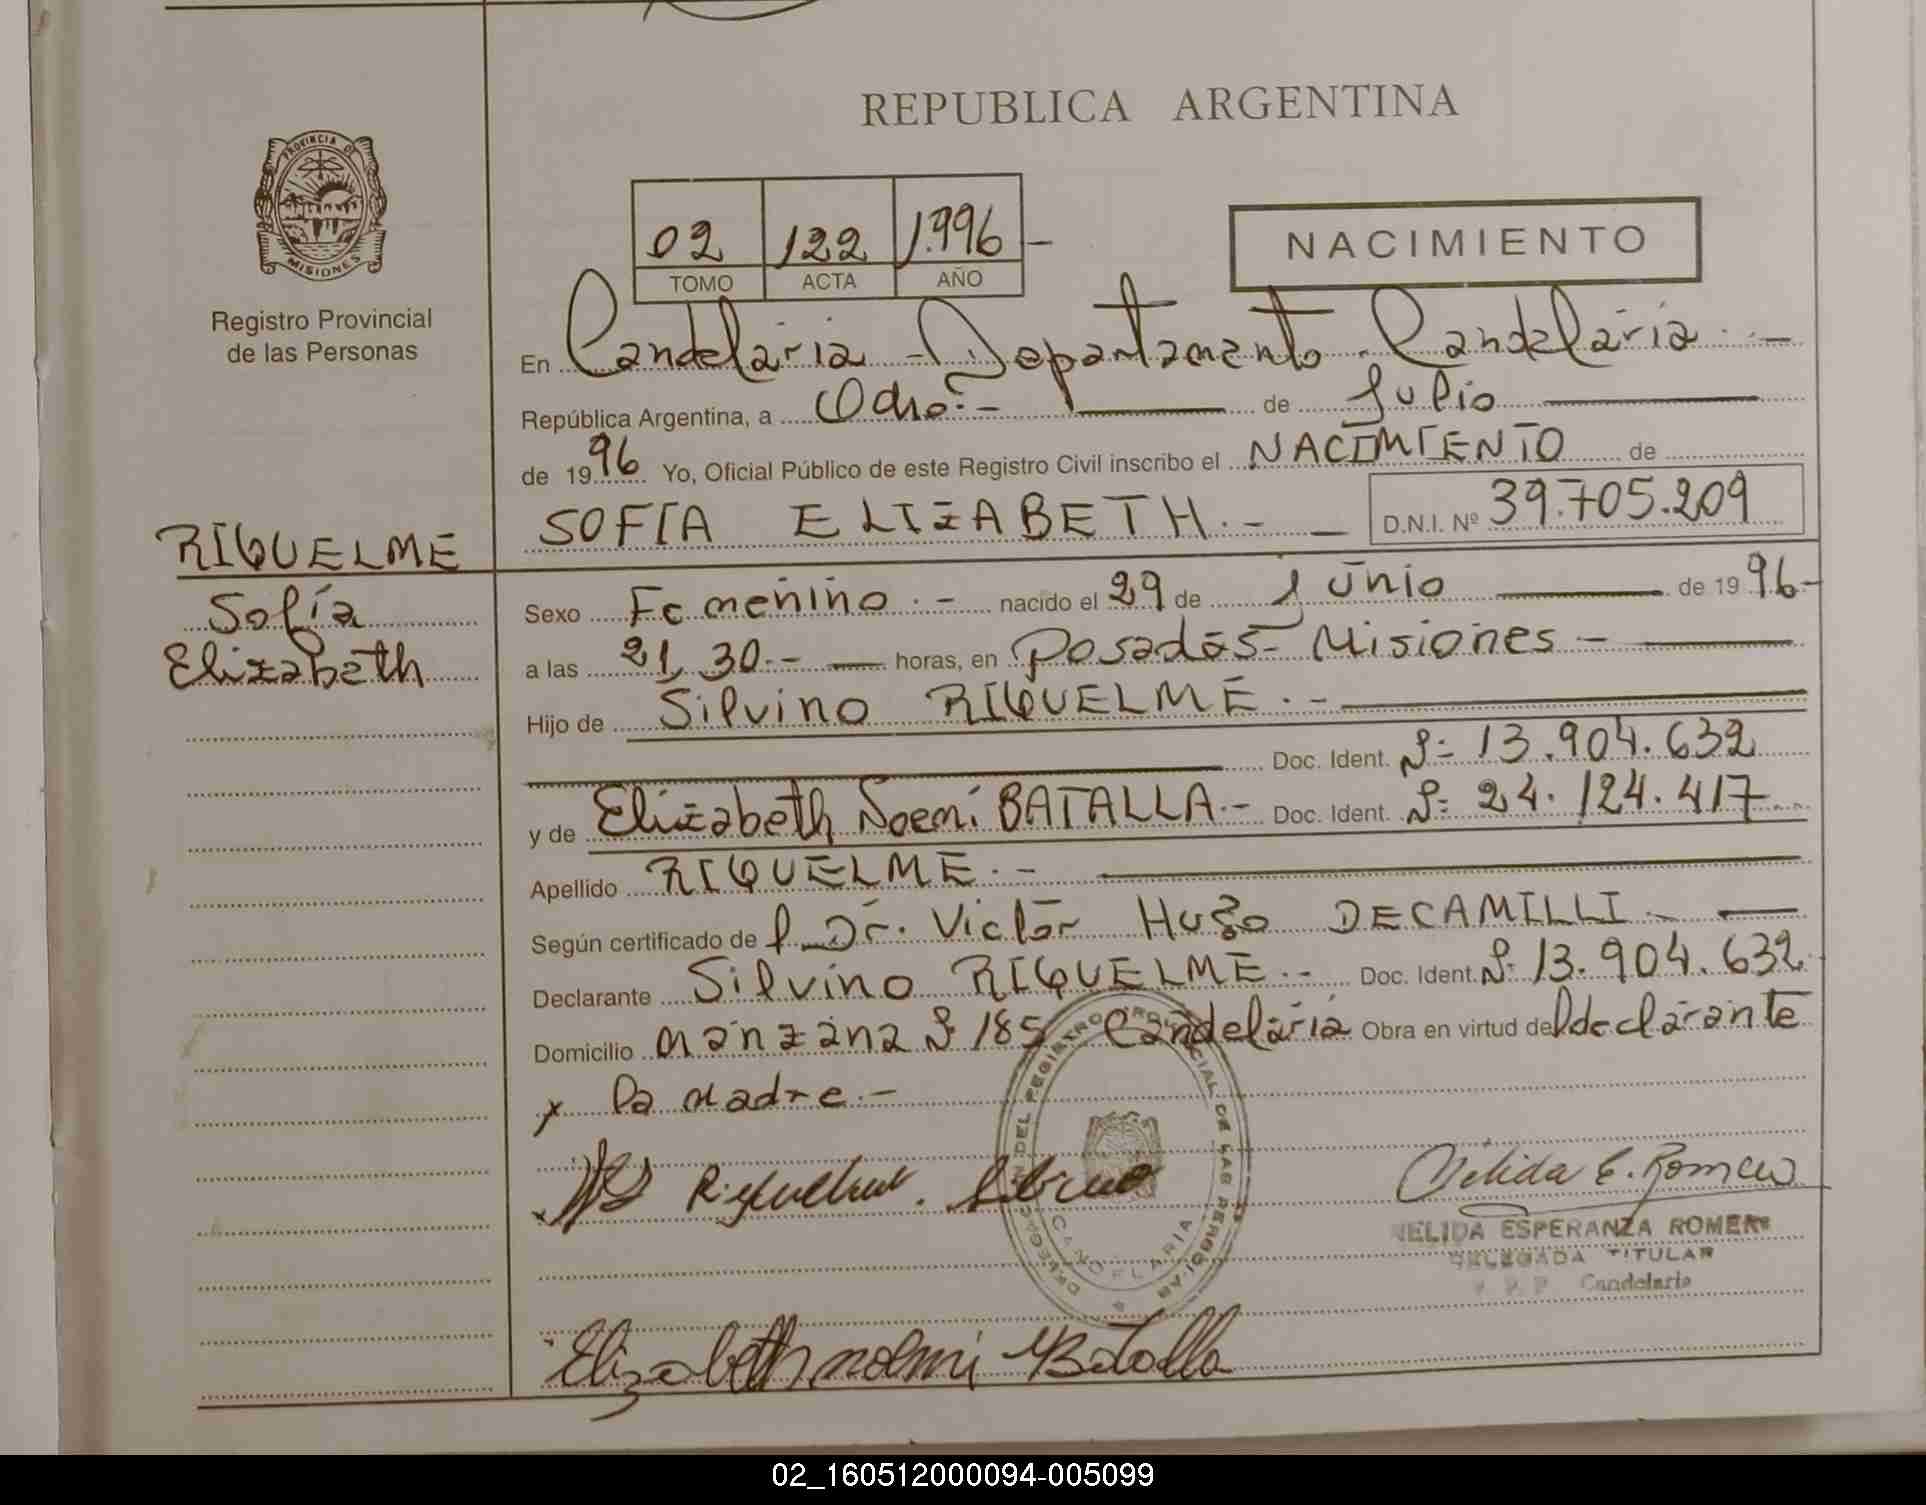 REPUBLICA ARGENTINA
PROVINCIA DE
MISIONES
Registro Provincial
de las Personas
02 122 1.996 -
TOMO ACTA AÑO
NACIMIENTO
En Candelaria - Departamento Candelaria . -
República Argentina, a Ocho. - de Julio
de 1996 Yo, Oficial Público de este Registro Civil inscribo el NACIMIENTO de
SOFIA ELIZABETH. - D.N.I. Nº 39.705.209
RIQUELME
Sofía
Elizabeth
Sexo Femenino . - nacido el 29 de junio de 1996-
a las 21, 30.- horas, en Posadas- Misiones -
Hijo de Silvino RIQUELME . -
Doc. Ident. Nº 13.904.632
y de Elizabeth Noemí BATALLA.- Doc. Ident. Nº 24.124.417
Apellido RIQUELME . -
Según certificado de l Dr. Victor Hugo DECAMILLI -
Declarante Silvino RIQUELME . - Doc. Ident. Nº 13.904.632
Domicilio Manzana Nº 185 Candelaria Obra en virtud del declarante
y la Madre . -
Riquelme Silvino
DELEGACION DEL REGISTRO PROVINCIAL DE LAS PERSONAS
CANDELARIA
Nelida E. Romero
NELIDA ESPERANZA ROMERO
DELEGADA TITULAR
Candelaria
Elizabeth noemi Batalla
02_160512000094-005099